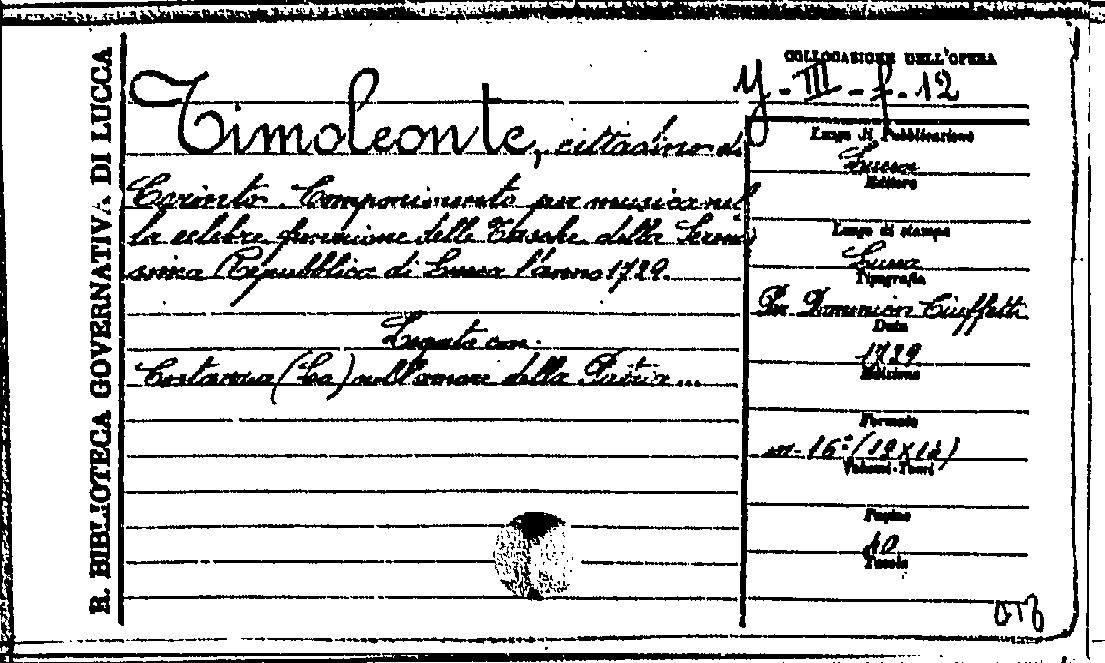 R. BIBLIOTECA GOVERNATIVA DI LUCCA
COLLOCASIONE DELL'OPERA
Y-III-f.-12
Timoleonte, cittadino di
Corinto. Componimento per musica nel
la celebre funzione delle Tasche della Sereni
ssima Repubblica di Lucca l'anno 1729.
Legato con:
Costanza (La) nell'amore della Patria...
Luogo di Pubblicazione
Lucca
Editore
Luogo di stampa
Lucca
Tipografia
Per Domenico Ciuffetti
Data
1729
Edizione
Formato
in-16º (19X14)
Volumi-Tomi
Pagine
40
Tavole